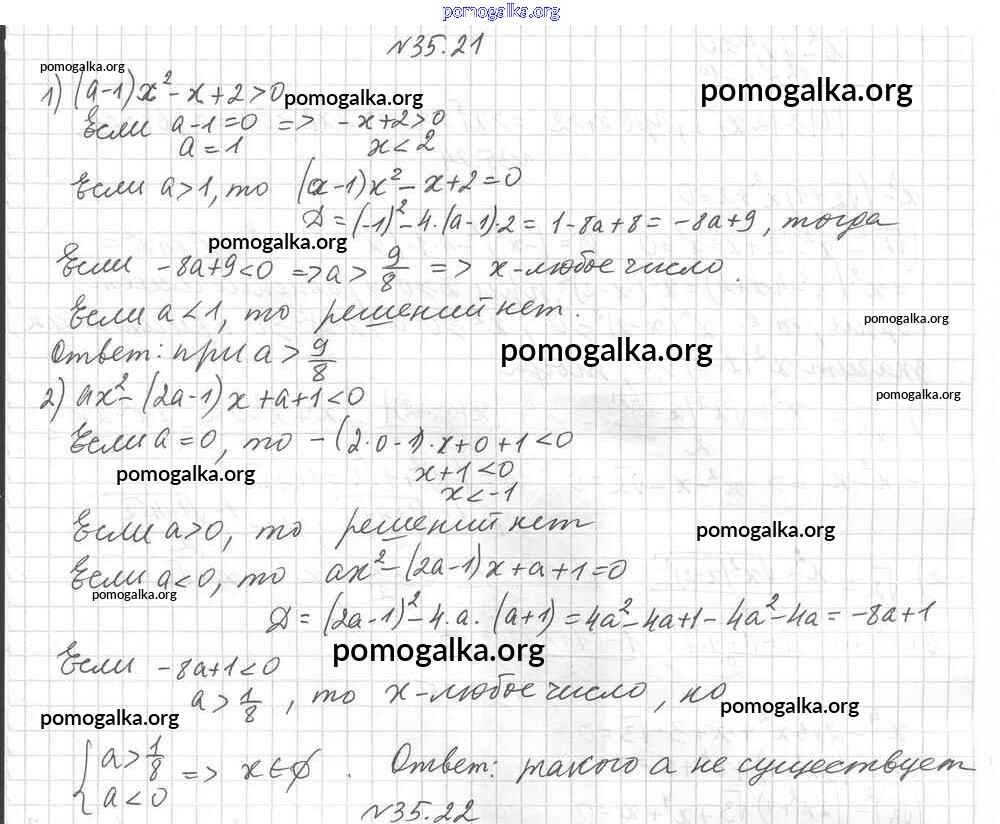 pomogalka.org
№35.21
pomogalka.org
1) (a-1)x² - x + 2 > 0 pomogalka.org pomogalka.org
Если a-1 = 0 => -x+2>0
a = 1 x < 2
Если a>1, то (a-1)x² - x + 2 = 0
Д = (-1)² - 4·(a-1)·2 = 1-8a+8 = -8a+9, тогда
pomogalka.org
Если -8a+9<0 => a > 9/8 => x-любое число.
Если a < 1, то решений нет.
pomogalka.org
Ответ: при a > 9/8 pomogalka.org
2) ax² - (2a-1)x + a + 1 < 0 pomogalka.org
Если a = 0, то -(2·0-1)·x+0+1<0
pomogalka.org x+1<0
x<-1
Если a>0, то решений нет pomogalka.org
Если a<0, то ax² - (2a-1)x + a + 1 = 0
pomogalka.org
Д = (2a-1)² - 4·a·(a+1) = 4a² - 4a + 1 - 4a² - 4a = -8a+1
Если -8a+1<0 pomogalka.org
a > 1/8, то x-любое число, но pomogalka.org
pomogalka.org
{ a > 1/8
a < 0 => x ∈ ∅. Ответ: такого a не существует
№35.22